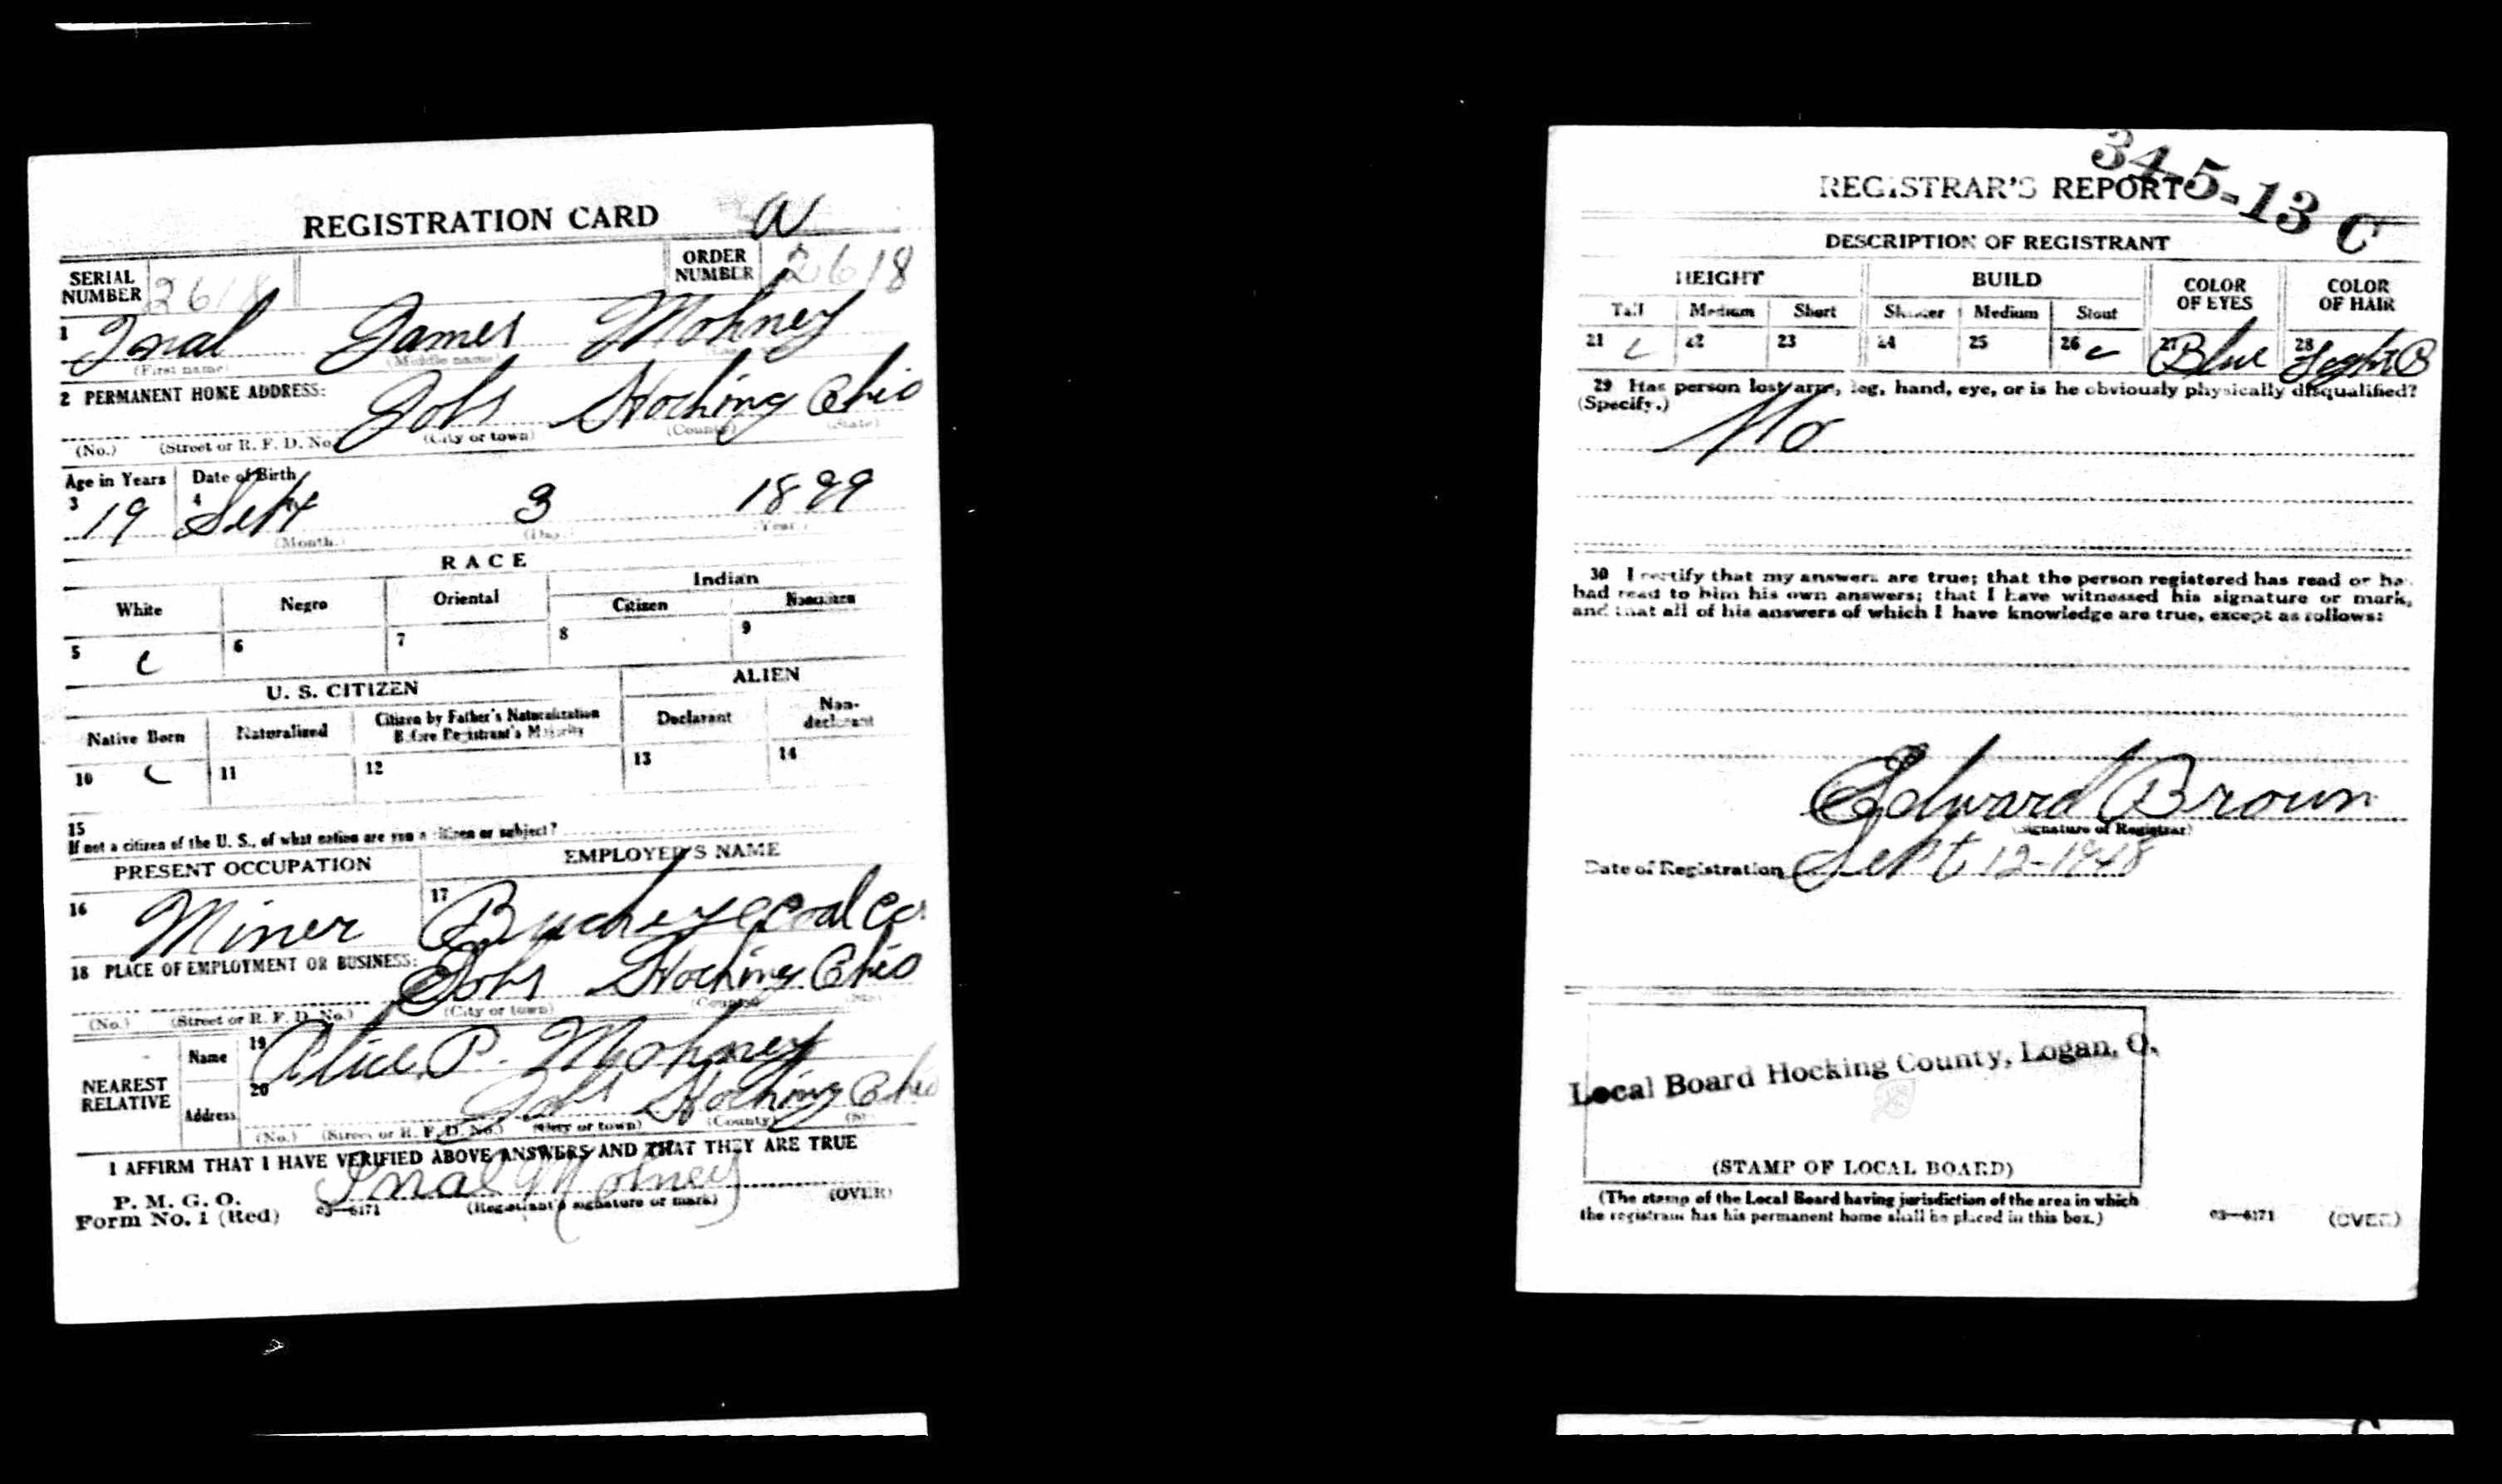 REGISTRATION CARD
SERIAL NUMBER 2618 ORDER NUMBER 2618
1 Inal James Mohney
(First name) (Middle name)
2 PERMANENT HOME ADDRESS: Jobs Hocking Ohio
(No.) (Street or R. F. D. No.) (City or town) (County) (State)
Age in Years Date of Birth
3 19 4 Sept 3 1899
(Month.) (Day.) (Year.)
RACE
White Negro Oriental Indian
Citizen Noncitizen
5 6 7 8 9
U. S. CITIZEN ALIEN
Native Born Naturalized Citizen by Father's Naturalization Before Registrant's Majority Declarant Non-declarant
10 11 12 13 14
15
If not a citizen of the U. S., of what nation are you a citizen or subject?
PRESENT OCCUPATION EMPLOYER'S NAME
16 Miner 17 Buckeye Coal Co.
18 PLACE OF EMPLOYMENT OR BUSINESS: Jobs Hocking Ohio
(No.) (Street or R. F. D. No.) (City or town) (County)
NEAREST RELATIVE Name 19 Alice P. Mohney
Address 20 Jobs Hocking Ohio
(No.) (Street or R. F. D. No.) (City or town) (County)
I AFFIRM THAT I HAVE VERIFIED ABOVE ANSWERS AND THAT THEY ARE TRUE
Inal Mohney
P. M. G. O.
Form No. 1 (Red) 03—6171 (Registrant's signature or mark) (OVER)
34-5-13 C
REGISTRAR'S REPORT
DESCRIPTION OF REGISTRANT
HEIGHT BUILD COLOR OF EYES COLOR OF HAIR
Tall Medium Short Slender Medium Stout
21 22 23 24 25 26 27 Blue 28 Light B
29 Has person lost arm, leg, hand, eye, or is he obviously physically disqualified?
(Specify.) No
30 I certify that my answers are true; that the person registered has read or has
had read to him his own answers; that I have witnessed his signature or mark,
and that all of his answers of which I have knowledge are true, except as follows:
Edward Brown
(Signature of Registrar)
Date of Registration Sept 12-1918
Local Board Hocking County, Logan, O.
(STAMP OF LOCAL BOARD)
(The stamp of the Local Board having jurisdiction of the area in which
the registrant has his permanent home shall be placed in this box.)
03—6171 (OVER)